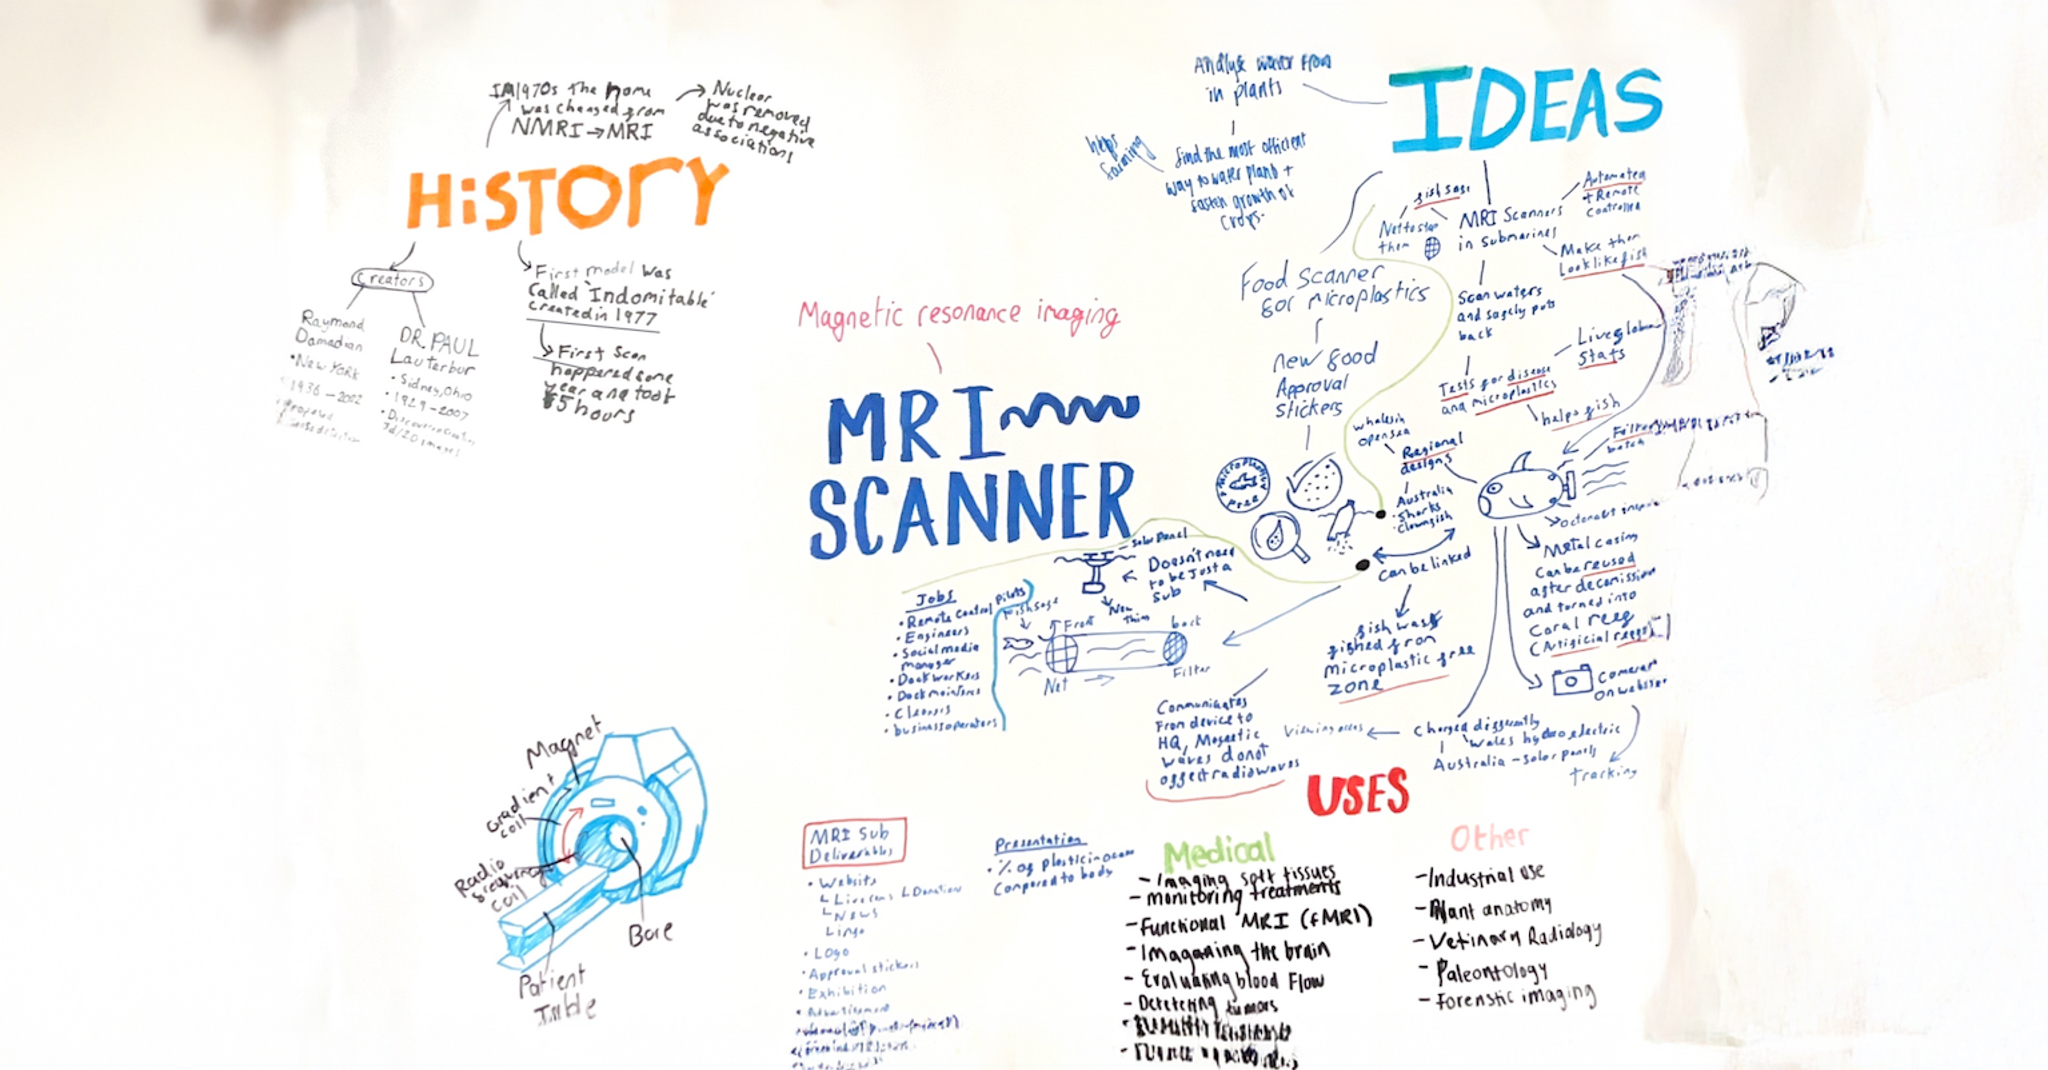 IN 1970s The name
was changed from
NMRI → MRI
Nuclear
was removed
due to negative
associations
HiSTORY
Creators
Raymond
Damadian
• New York
• 1936 - 2022
DR. PAUL
Lauterbur
• Sidney, Ohio
• 1929 - 2007
First model was
Called 'Indomitable'
Created in 1977
First Scan
happened same
year and took
5 hours
Magnetic resonance imaging
MRI
SCANNER
IDEAS
Analyse water from
in plants
helps
farming
find the most efficient
way to water plants +
fasten growth of
crops.
Food Scanner
for microplastics
new food
Approval
stickers
Microplastic
Free
fish safe
Net to stop
them
MRI Scanners
in Submarines
Automated
+ Remote
Controlled
Make them
Look like fish
Scan waters
and safely puts
back
Tests for disease
and microplastics
Live global
Stats
helps fish
whales in
open sea
Regional
designs
Australia
• Sharks
• Clownfish
Filter
Can be linked
fish was
fished from
microplastic free
zone
Metal casing
Can be reused
after decomission
and turned into
Coral reef
(Artificial reefs)
Cameras
On website
Tracking
Charged differently
Wales hydroelectric
Australia - solar panels
Viewing areas
Solar Panel
Doesn't need
to be just a
Sub
Fish safe
Front
back
Net
Filter
Jobs
• Remote control pilots
• Engineers
• Social media
manager
• Dock workers
• Cleaners
• business operators
Communicates
From device to
HQ, Magnetic
waves do not
affect radiowaves
Magnet
Gradient
coil
Radio
frequency
coil
Patient
Table
Bore
MRI Sub
Deliverables
• Website
Donation
News
Lingo
• Logo
• Approval stickers
• Exhibition
• Advertisement
Presentation
• % of plastic in ocean
Compared to body
USES
Medical
- Imaging soft tissues
- monitoring treatments
- Functional MRI (fMRI)
- Imaganing the brain
- Evaluating blood Flow
- Detetering tumors
Other
- Industrial use
- Plant anatomy
- Vetinary Radiology
- Paleontology
- Forenstic imaging